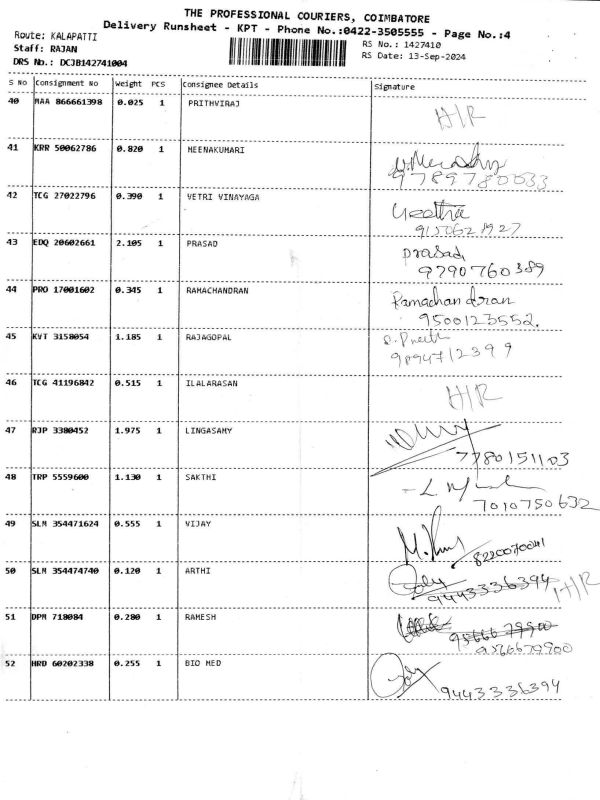 THE PROFESSIONAL COURIERS, COIMBATORE
Delivery Runsheet - KPT - Phone No.:0422-3505555 - Page No.:4
Route: KALAPATTI
RS No.: 1427410
Staff: RAJAN
RS Date: 13-Sep-2024
DRS No.: DCJB142741004
S No Consignment No Weight PCS Consignee Details Signature
40 MAA 866661398 0.025 1 PRITHVIRAJ H/R
41 KRR 50062786 0.820 1 MEENAKUMARI
9789780033
42 TCG 27022796 0.390 1 VETRI VINAYAGA Geetha
43 EDQ 20602661 2.105 1 PRASAD prasad
9790760389
44 PRO 17001602 0.345 1 RAMACHANDRAN Ramachandran
9500123552.
45 KVT 3158054 1.185 1 RAJAGOPAL
9894712399
46 TCG 41196842 0.515 1 ILALARASAN H/R
47 RJP 3380452 1.975 1 LINGASAMY
7780151103
48 TRP 5559600 1.130 1 SAKTHI
7010750632
49 SLM 354471624 0.555 1 VIJAY
8220070041
50 SLM 354474740 0.120 1 ARTHI
9443336394 H/R
51 DPM 718084 0.280 1 RAMESH
9566679900
52 HRD 60202338 0.255 1 BIO MED
9443336394